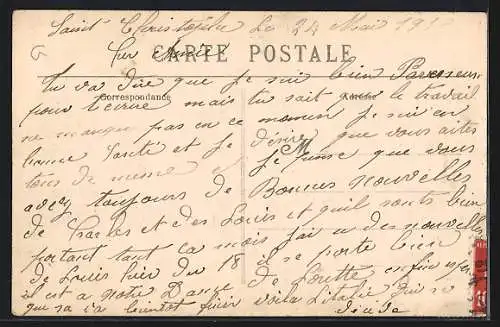 Saint Christophe Le 24 Mai 191
sur
CARTE POSTALE
Correspondance
Adresse
tu va dire que je sui bien Paresseux
pour écrire mais tu sait que le travail
ne manque pas en ce moment je sui en
bonne Santé et je désire que vous aites
tous de meme je pense que vous
avez toujours de Bonnes nouvelles
de Charles et des Louis et quil sont bien
portant tant ca mois j'ai u des nouvelles
de Louis hier du 18 il se porte bien
il est a notre Dame de Lorette enfin
qui sa va bientot finir voila l'italie qui se
décide